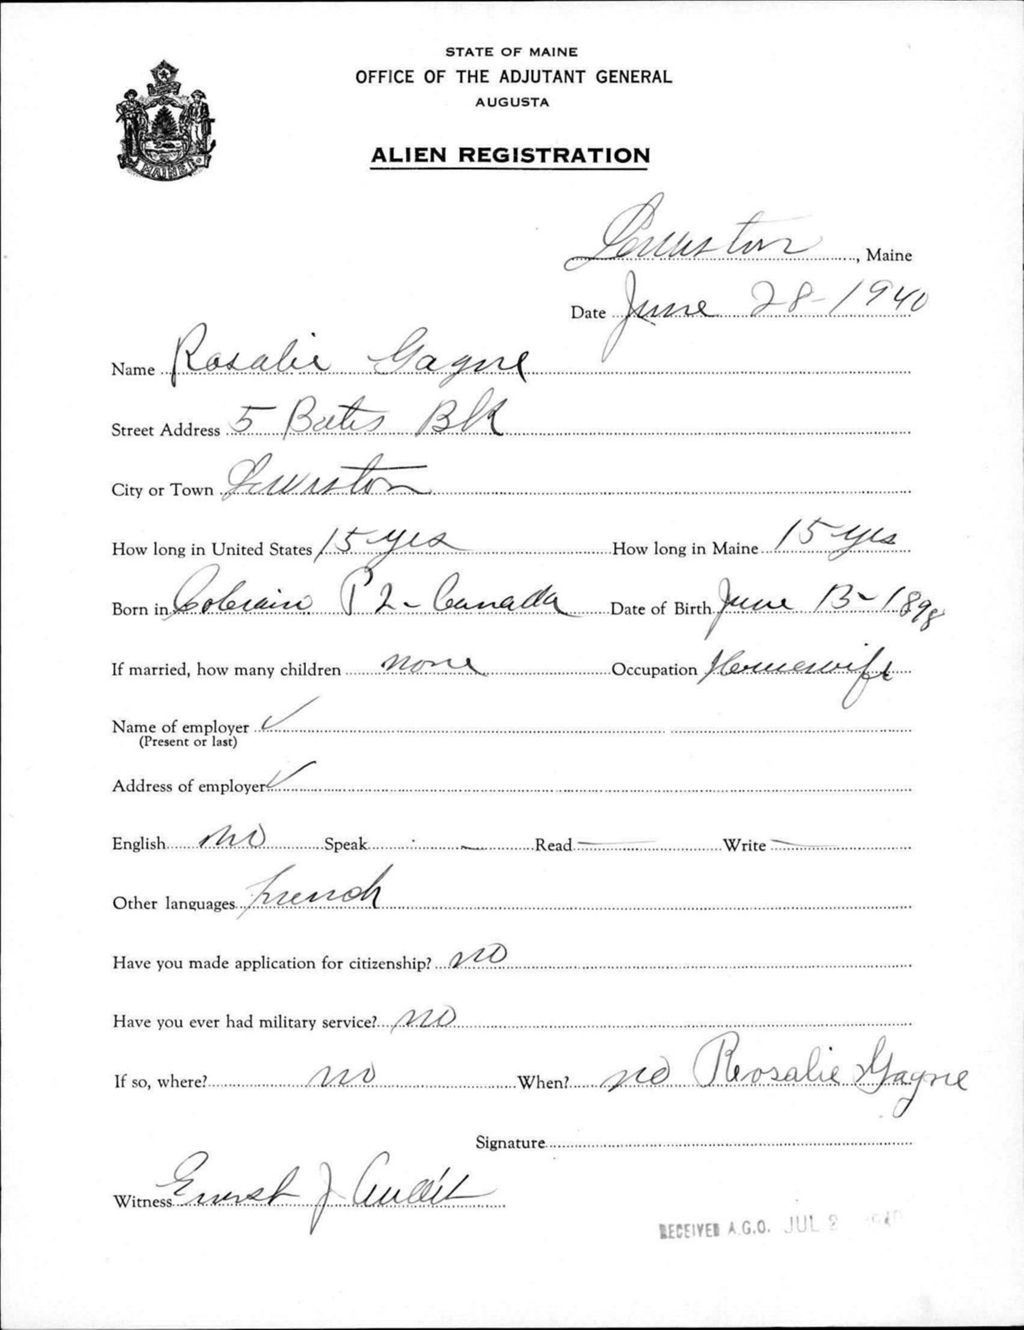 STATE OF MAINE
OFFICE OF THE ADJUTANT GENERAL
AUGUSTA
ALIEN REGISTRATION
MAINE
Lewiston, Maine
Date June 28-1940
Name Rosalie Gagne
Street Address 5 Bates Blk
City or Town Lewiston
How long in United States 15 yes How long in Maine 15 yes
Born in P2- Canada Date of Birth June 13-1898
If married, how many children none Occupation Housewife
Name of employer ✓
(Present or last)
Address of employer ✓
English no Speak - Read - Write -
Other languages french
Have you made application for citizenship? no
Have you ever had military service? no
If so, where? no When? no Rosalie Gagne
Signature
Witness Ernest J
RECEIVED A.G.O. JUL 2 1940